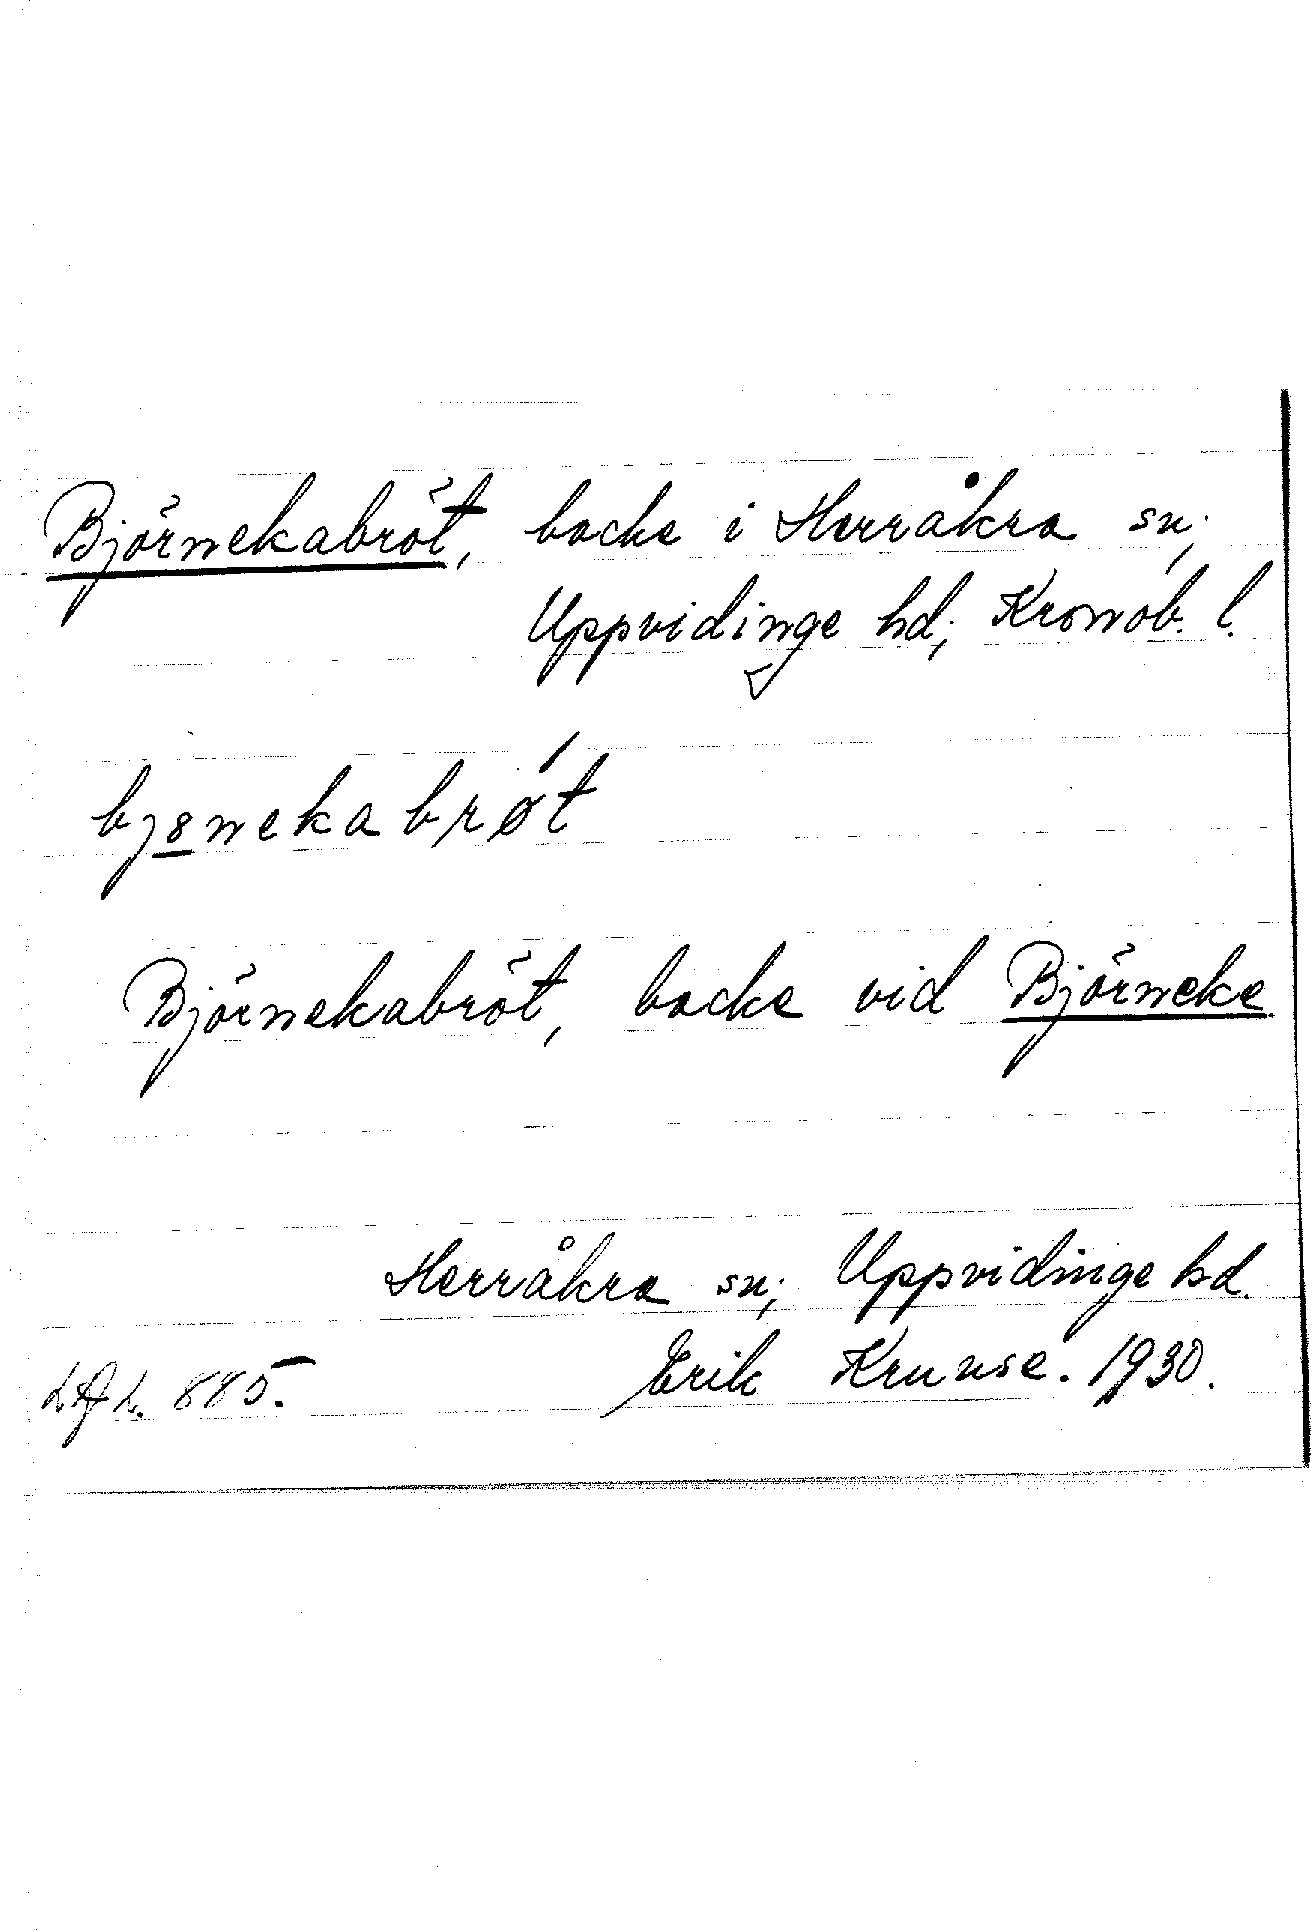 Björnekabröt, backe i Herråkra sn;
Uppvidinge hd; Kronob. l.
bj8nekabrøt
Björnekabröt, backe vid Björneke
Herråkra sn; Uppvidinge hd.
Erik Kruuse. 1930.
885.